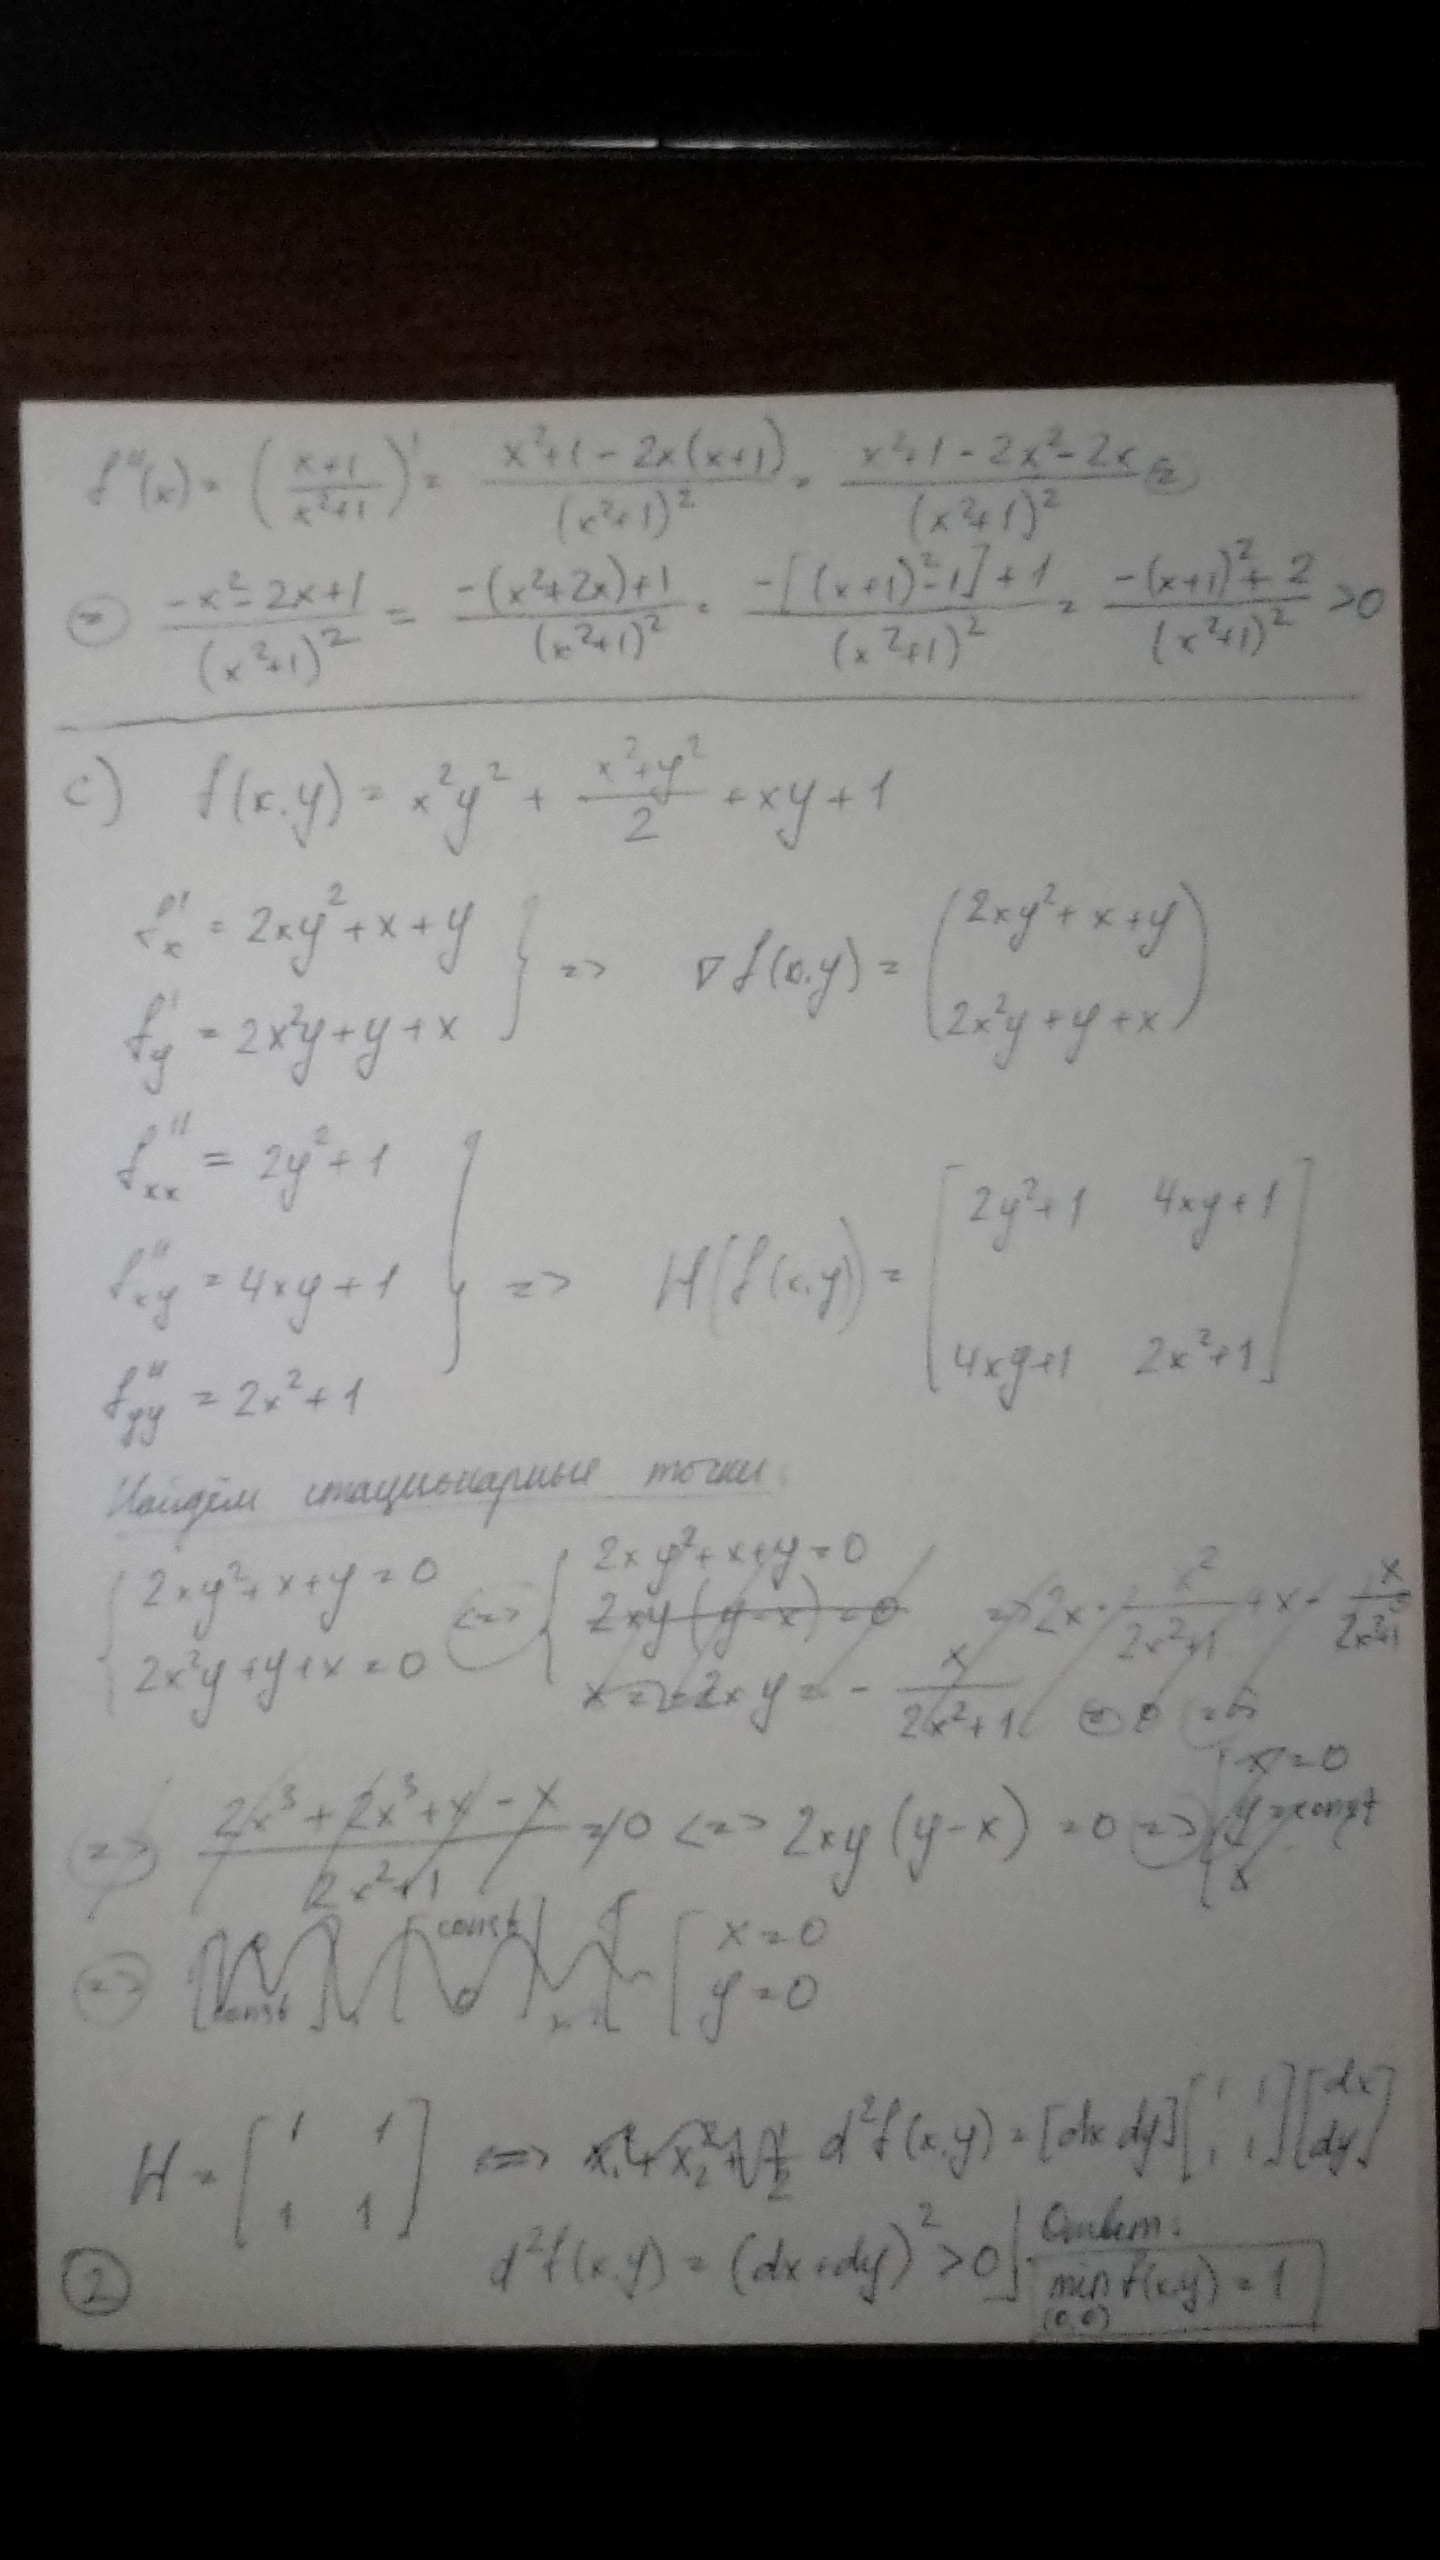 f''(x) = ((x+1)/(x²+1))' = (x²+1-2x(x+1))/(x²+1)² = (x²+1-2x²-2x)/(x²+1)² =
= (-x²-2x+1)/(x²+1)² = (-(x²+2x)+1)/(x²+1)² = (-[(x+1)²-1]+1)/(x²+1)² = (-(x+1)²+2)/(x²+1)² >0
c) f(x,y) = x²y² + (x²+y²)/2 + xy + 1
f'x = 2xy²+x+y
f'y = 2x²y+y+x } => ∇f(x,y) = (2xy²+x+y
2x²y+y+x)
f''xx = 2y²+1
f''xy = 4xy+1 } => H(f(x,y)) = [2y²+1 4xy+1
4xy+1 2x²+1]
f''yy = 2x²+1
Найдём стационарные точки:
{2xy²+x+y=0 <=> {2xy²+x+y=0
2x²y+y+x=0 2xy(y-x)=0 => 2x · x²/(2x²+1) + x - x/(2x²+1)
y = -x/(2x²+1) = 0 =>
=> (2x³+2x³+x-x)/(2x²+1) = 0 <=> 2xy(y-x) = 0 => x=0
y=const
x
=> const const [x=0
y=0
H = [1 1
1 1] <=> d²f(x,y) = [dx dy][1 1
1 1][dx
dy]
d²f(x,y) = (dx+dy)² >0
Ответ:
min f(x,y) = 1
(0,0)
2